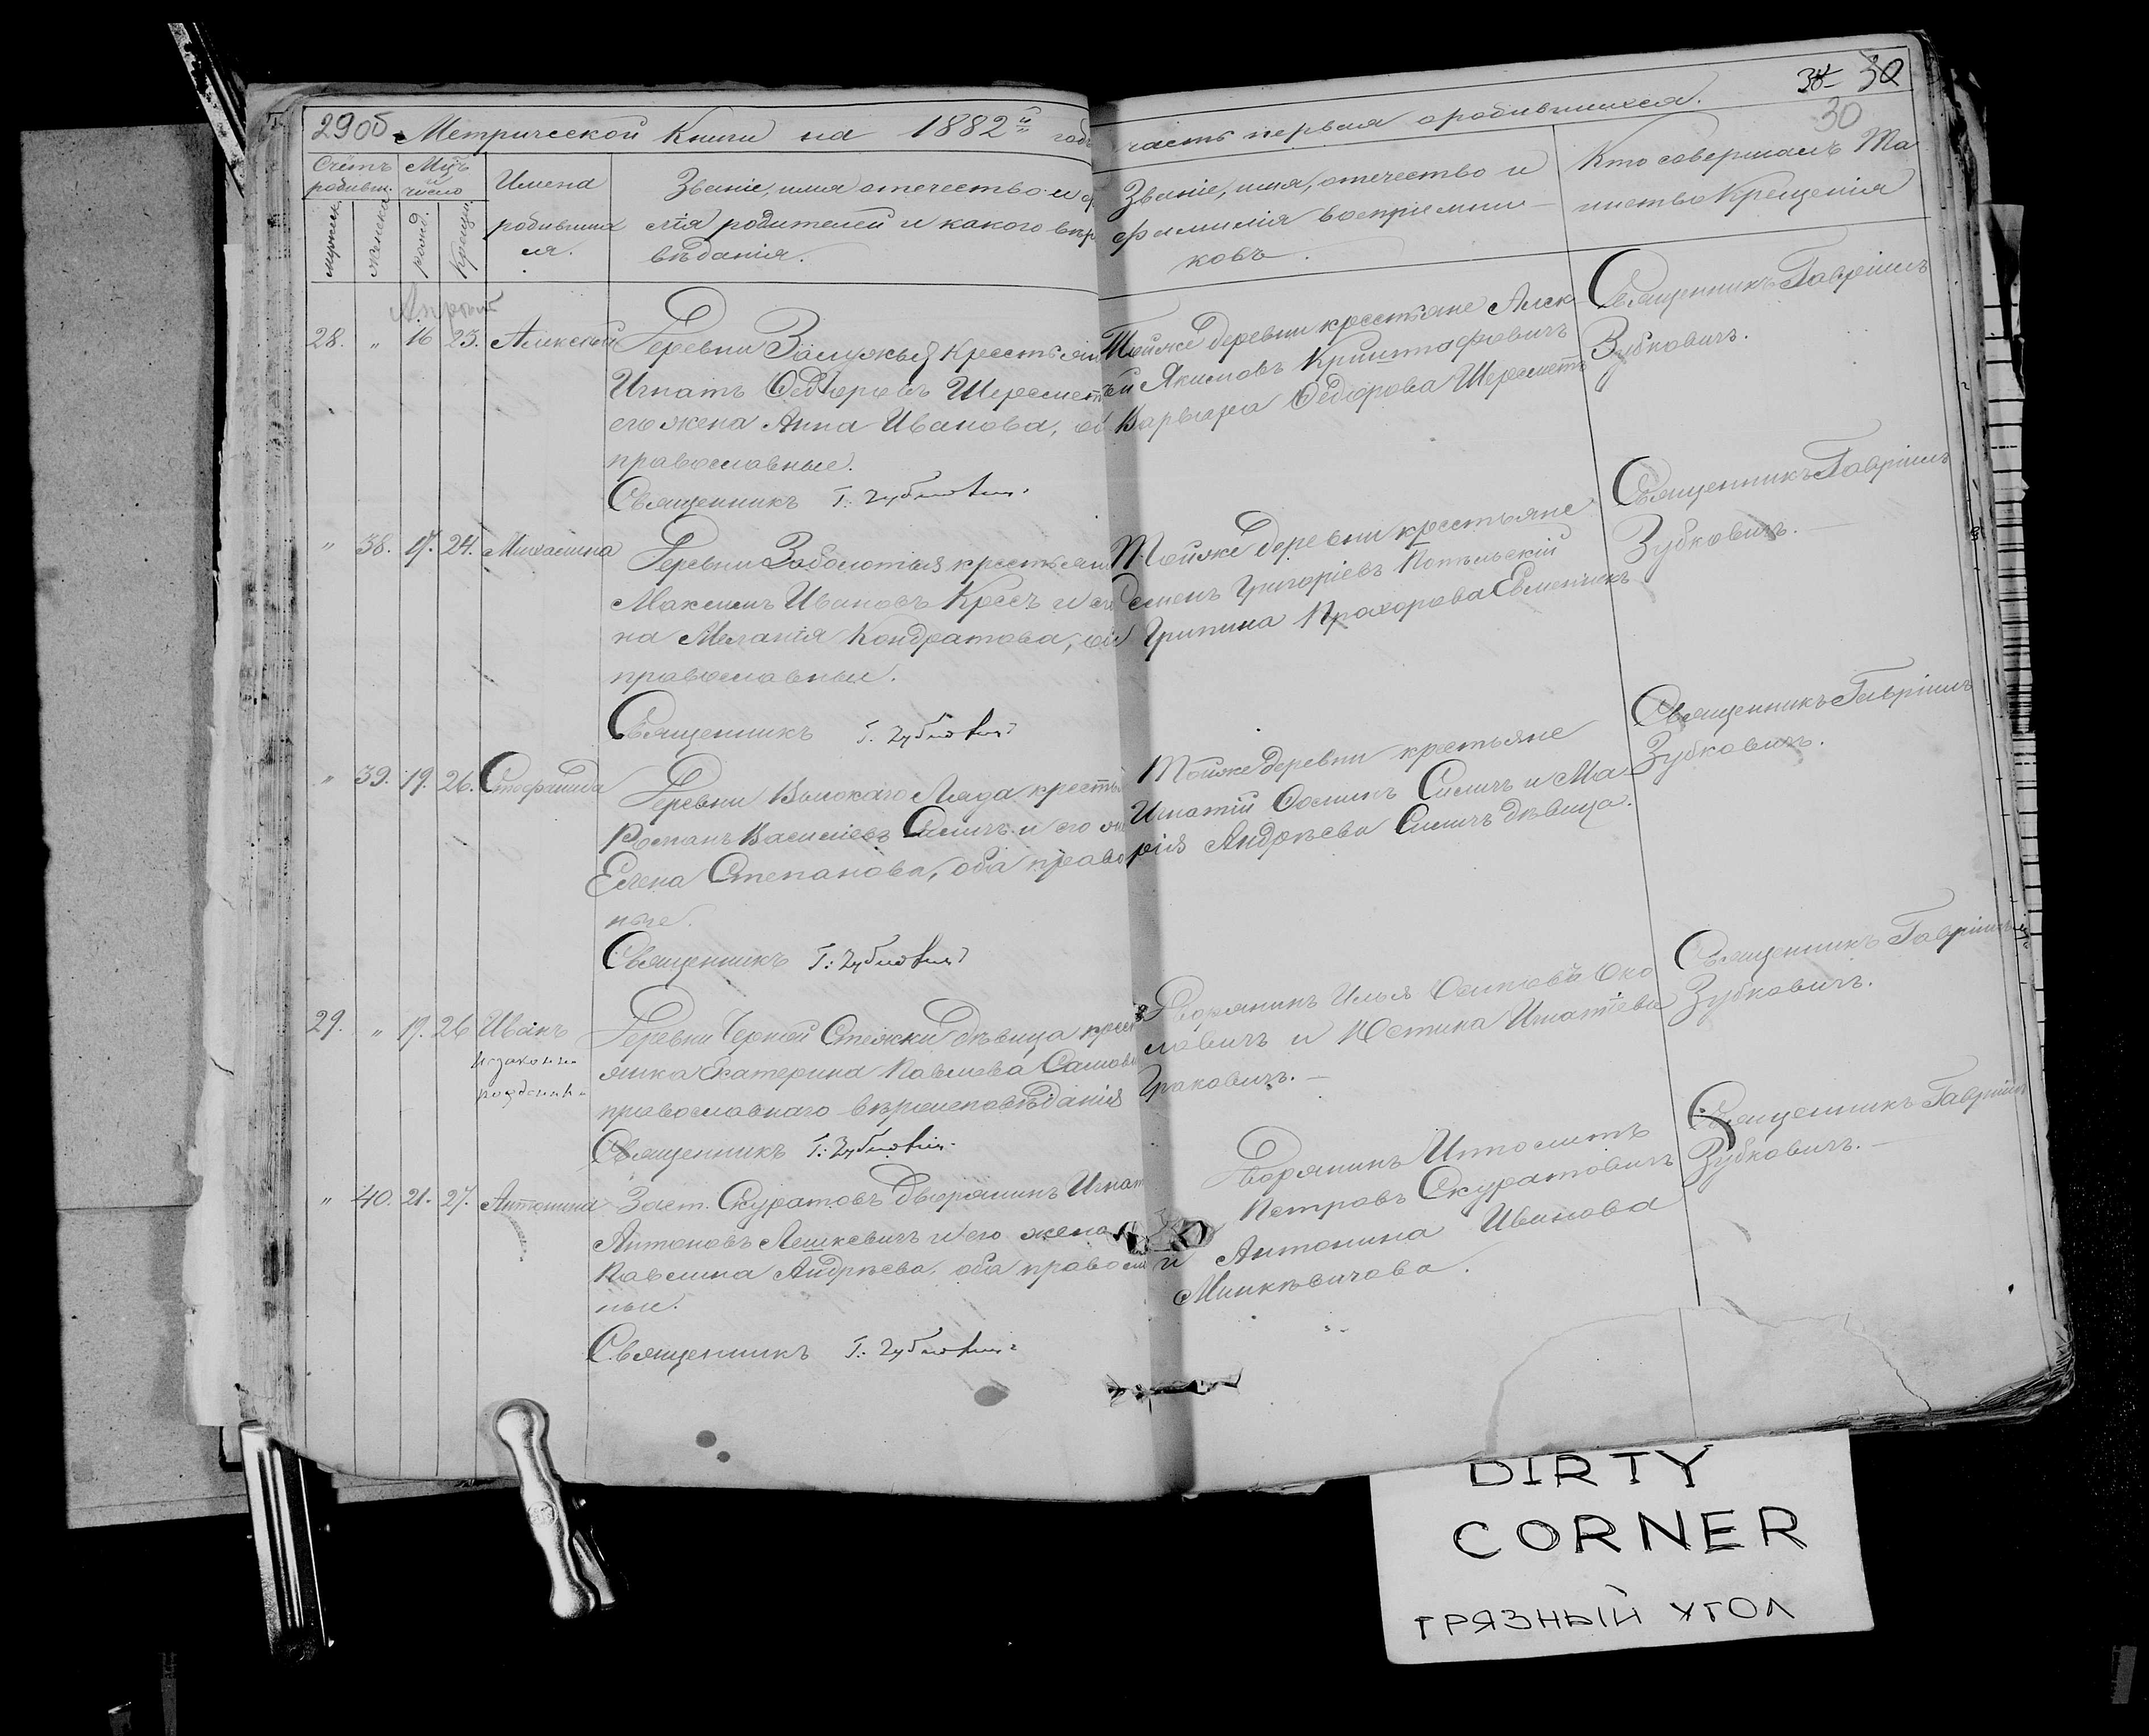 29об Метрической Книги на 1882й годъ часть первая о родившихся.
30
30
Счётъ родивш.
Мцъ и число
Имена родившихся.
Званіе, имя отечество и
лія родителей и какого вѣр
вѣданія.
Званіе, имя, отечество и
фамилія воспріемни-
ковъ.
Кто совершалъ Та
инство Крещенія
мужеск.
женска
рожд.
крещен.
Апрель
28. „ 16 23. Алексѣй
Деревни Залужья крестьян
Игнатъ Ѳедоровъ Шеремет
его жена Анна Иванова, об
православные.
Священникъ Г. Зубковичъ
Тойже деревни крестьяне Алек-
ѣй Якимовъ Криштофовичъ
Варвара Ѳедорова Шеремет
Священникъ Гавріилъ
Зубковичъ.
„ 38. 17. 24. Михалина
Деревни Заболотья крестьян
Максимъ Ивановъ Кресъ и его
на Меланія Кондратова, об
православные.
Священникъ Г. Зубковичъ
Тойже деревни крестьяне
Семенъ Григоріевъ
Грипина Прохорова
Священникъ Гавріилъ
Зубковичъ.
„ 39. 19. 26. Стефанида
Деревни Высокаго Ляда крестья
Романъ Василіевъ Силичъ и его же
Елена Степанова, оба право
ные.
Священникъ Г. Зубковичъ
Тойже деревни крестьяне
Игнатій Силичъ и Ма
рія Андрѣева Силичъ дѣвица.
Священникъ Гавріилъ
Зубковичъ.
29. „ 19. 26 Иванъ
незаконно
рожденн.
Деревни Черной Стежки дѣвица крест
янка Екатерина Павлова
православнаго вѣроисповѣданія
Священникъ Г. Зубковичъ
Дворянинъ Илья Осиповъ Око
ловичъ и Юстина Игнатіева
Граковичъ.
Священникъ Гавріилъ
Зубковичъ.
„ 40. 21. 27. Антонина
Заст. Скуратовъ дворянинъ Игнат
Антоновъ Лешкевичъ и его жена
Павлина Андрѣева, оба правосла
ные.
Священникъ Г. Зубковичъ
Дворянинъ Ипполитъ
Петровъ Скуратовичъ
и Антонина Иванова
Священникъ Гавріилъ
Зубковичъ.
DIRTY
CORNER
ГРЯЗНЫЙ УГОЛ